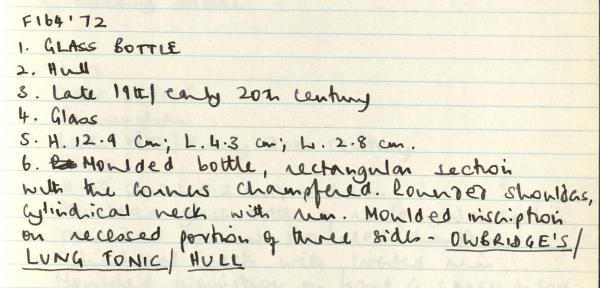 F164'72
1. GLASS BOTTLE
2. Hull
3. Late 19th/early 20th century
4. Glass
5. H. 12.9 cm; L. 4.3 cm; W. 2.8 cm.
6. Moulded bottle, rectangular section
with the corners champfered. Rounded shoulders,
cylindrical neck with rim. Moulded inscription
on recessed portion of three sides - OWBRIDGE'S/
LUNG TONIC/ HULL